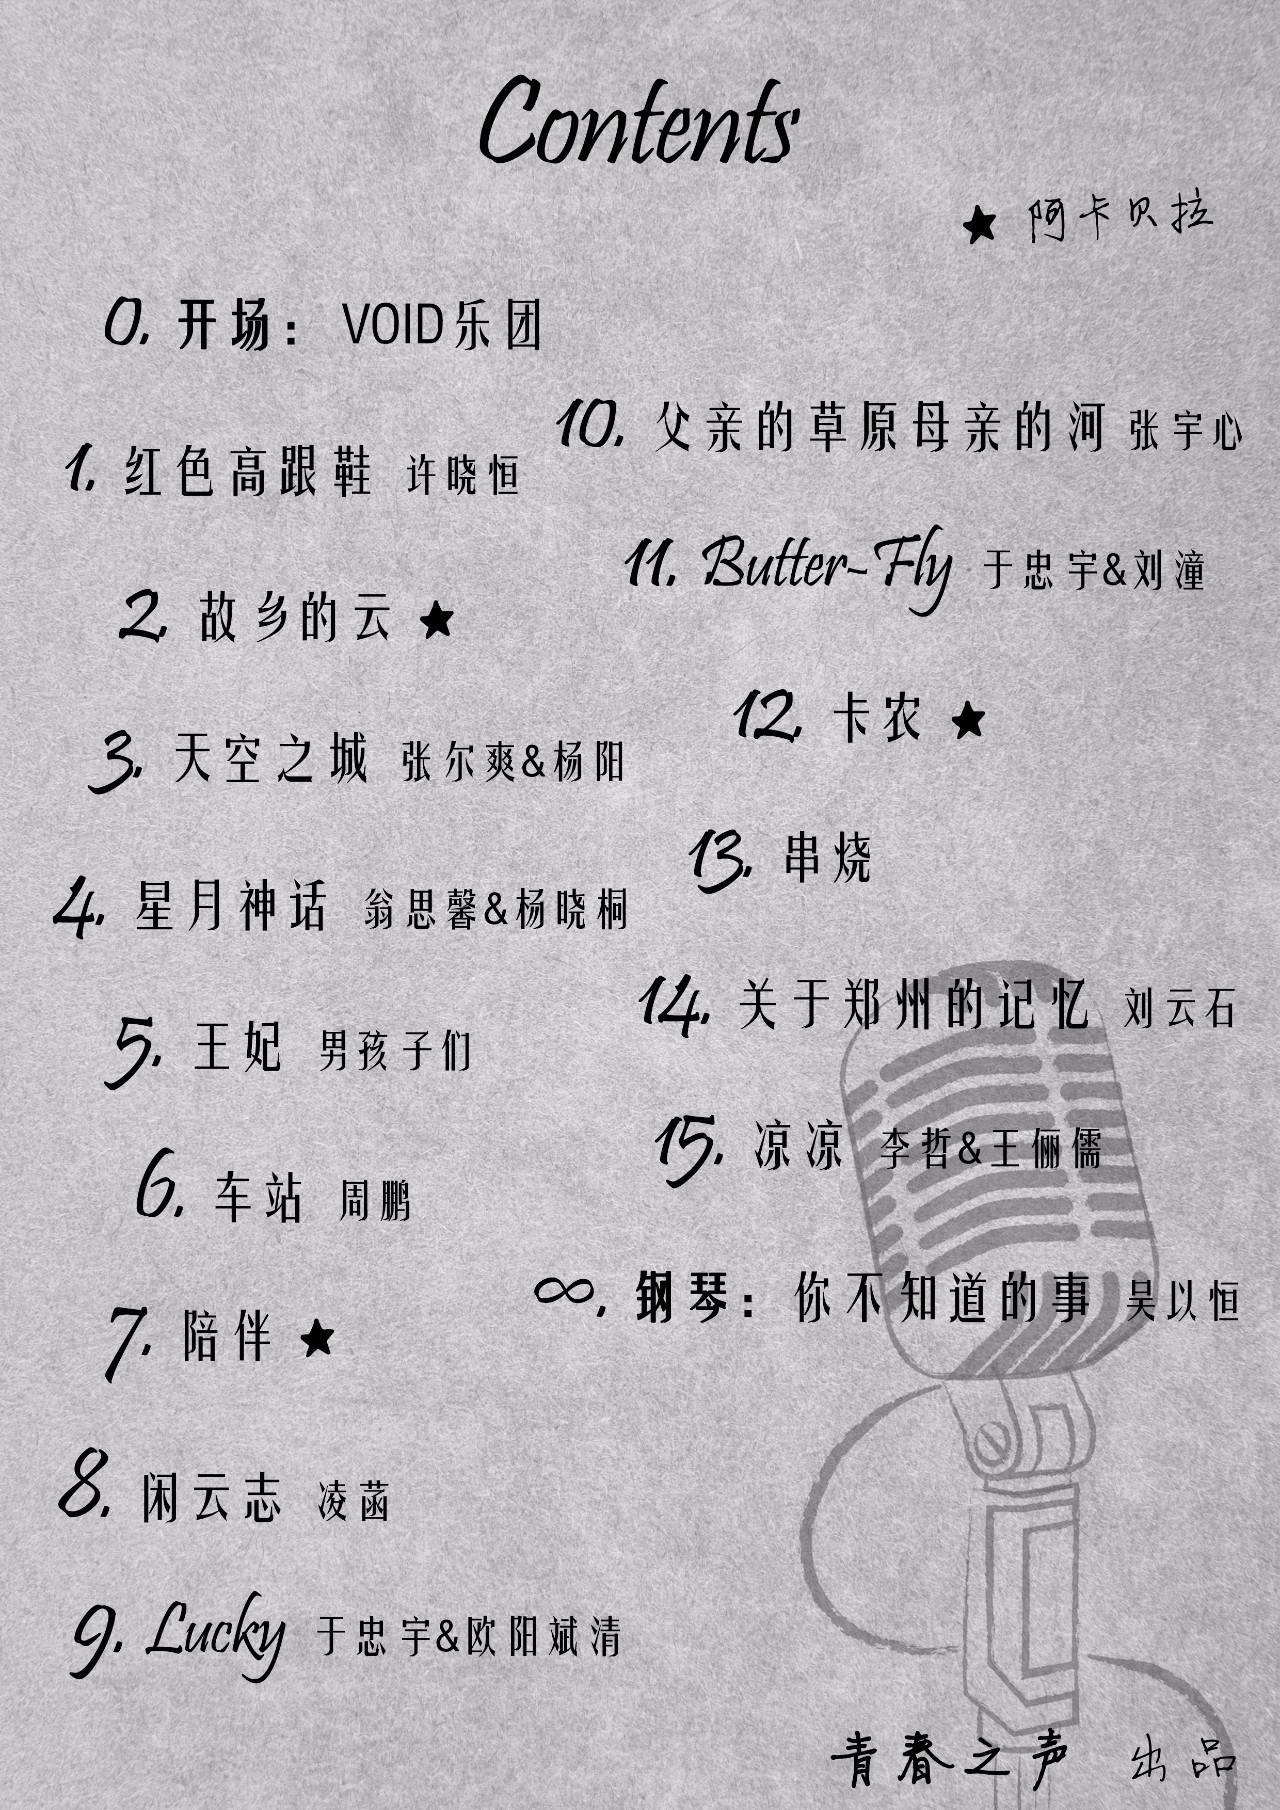 Contents
★ 阿卡贝拉
0. 开场： VOID乐团
1. 红色高跟鞋 许晓恒
2. 故乡的云 ★
3. 天空之城 张尔爽&杨阳
4. 星月神话 翁思馨&杨晓桐
5. 王妃 男孩子们
6. 车站 周鹏
7. 陪伴 ★
8. 闲云志 凌菡
9. Lucky 于忠宇&欧阳斌清
10. 父亲的草原母亲的河 张宇心
11. Butter-Fly 于忠宇&刘潼
12. 卡农 ★
13. 串烧
14. 关于郑州的记忆 刘云石
15. 凉凉 李哲&王俪儒
∞. 钢琴： 你不知道的事 吴以恒
青春之声 出品